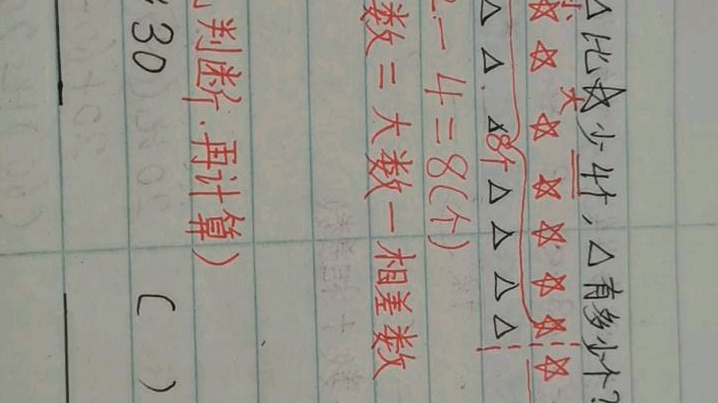 △比☆少4个,△有多少个?
大
☆ ☆ ☆ ☆ ☆ ☆ ☆ ☆
8个
△ △ △ △ △ △ △
- 4 = 8(个)
数 = 大数 - 相差数
判断.再计算)
30 ( )